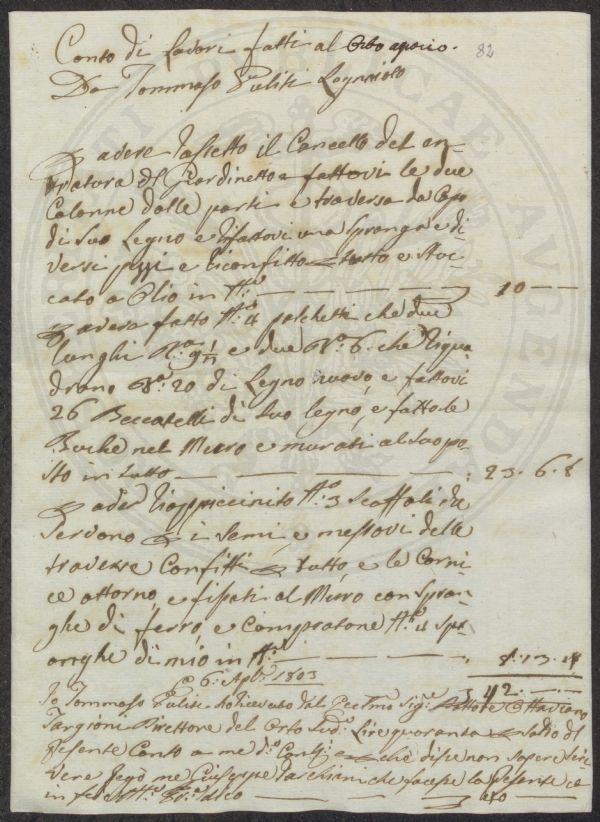 Conto di Lavori fatti al Orto agrario. 82
Da Tommaso Puliti Legnaiolo
P avere rassetto il Cancello del en-
tratura del Giardinetto e fattovi le due
Colonne dalle parti e traversa da Capo
di Suo Legno e rifattovi una Spranga e di-
versi pezzi e riconfitto tutto e stuc-
cato a Olio in tt.o 10
P avere fatto N.o 4 palchetti che due
lunghi B.a 9 e due B.a 6. che riqua-
drano B.a 20 di Legno nuovo, e fattovi
26 Beccatelli di Suo legno, e fatto le
Buche nel Muro e murati al Suo po-
sto in tutto 23. 6. 8
P aver rappiccinito N.o 3 Scaffali che
Servono P i Semi, e messovi delle
traverse Confitti P tutto, e le Corni-
ce attorno, e fissati al Muro con Spran-
ghe di ferro, e Compratone N.o 4 Spr-
anghe di mio in tt.o 8. 13. 4
42
6. Ap.le 1803
Io Tommaso Puliti ho ricevuto dal Ecc.mo Sig.e Dottore Ottaviano
Targioni Direttore del Orto Sud.o Lire quaranta Saldo del
presente Conto a me d.o Cont.i e che disse non sapere Scri-
vere pregò me Giuseppe che facesse la presente
in fede